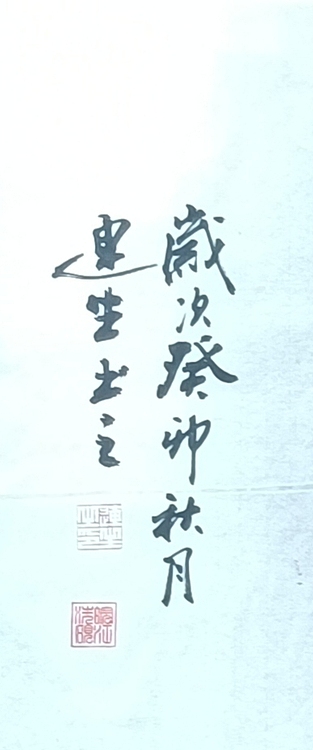 歲次癸卯秋月
連生书之